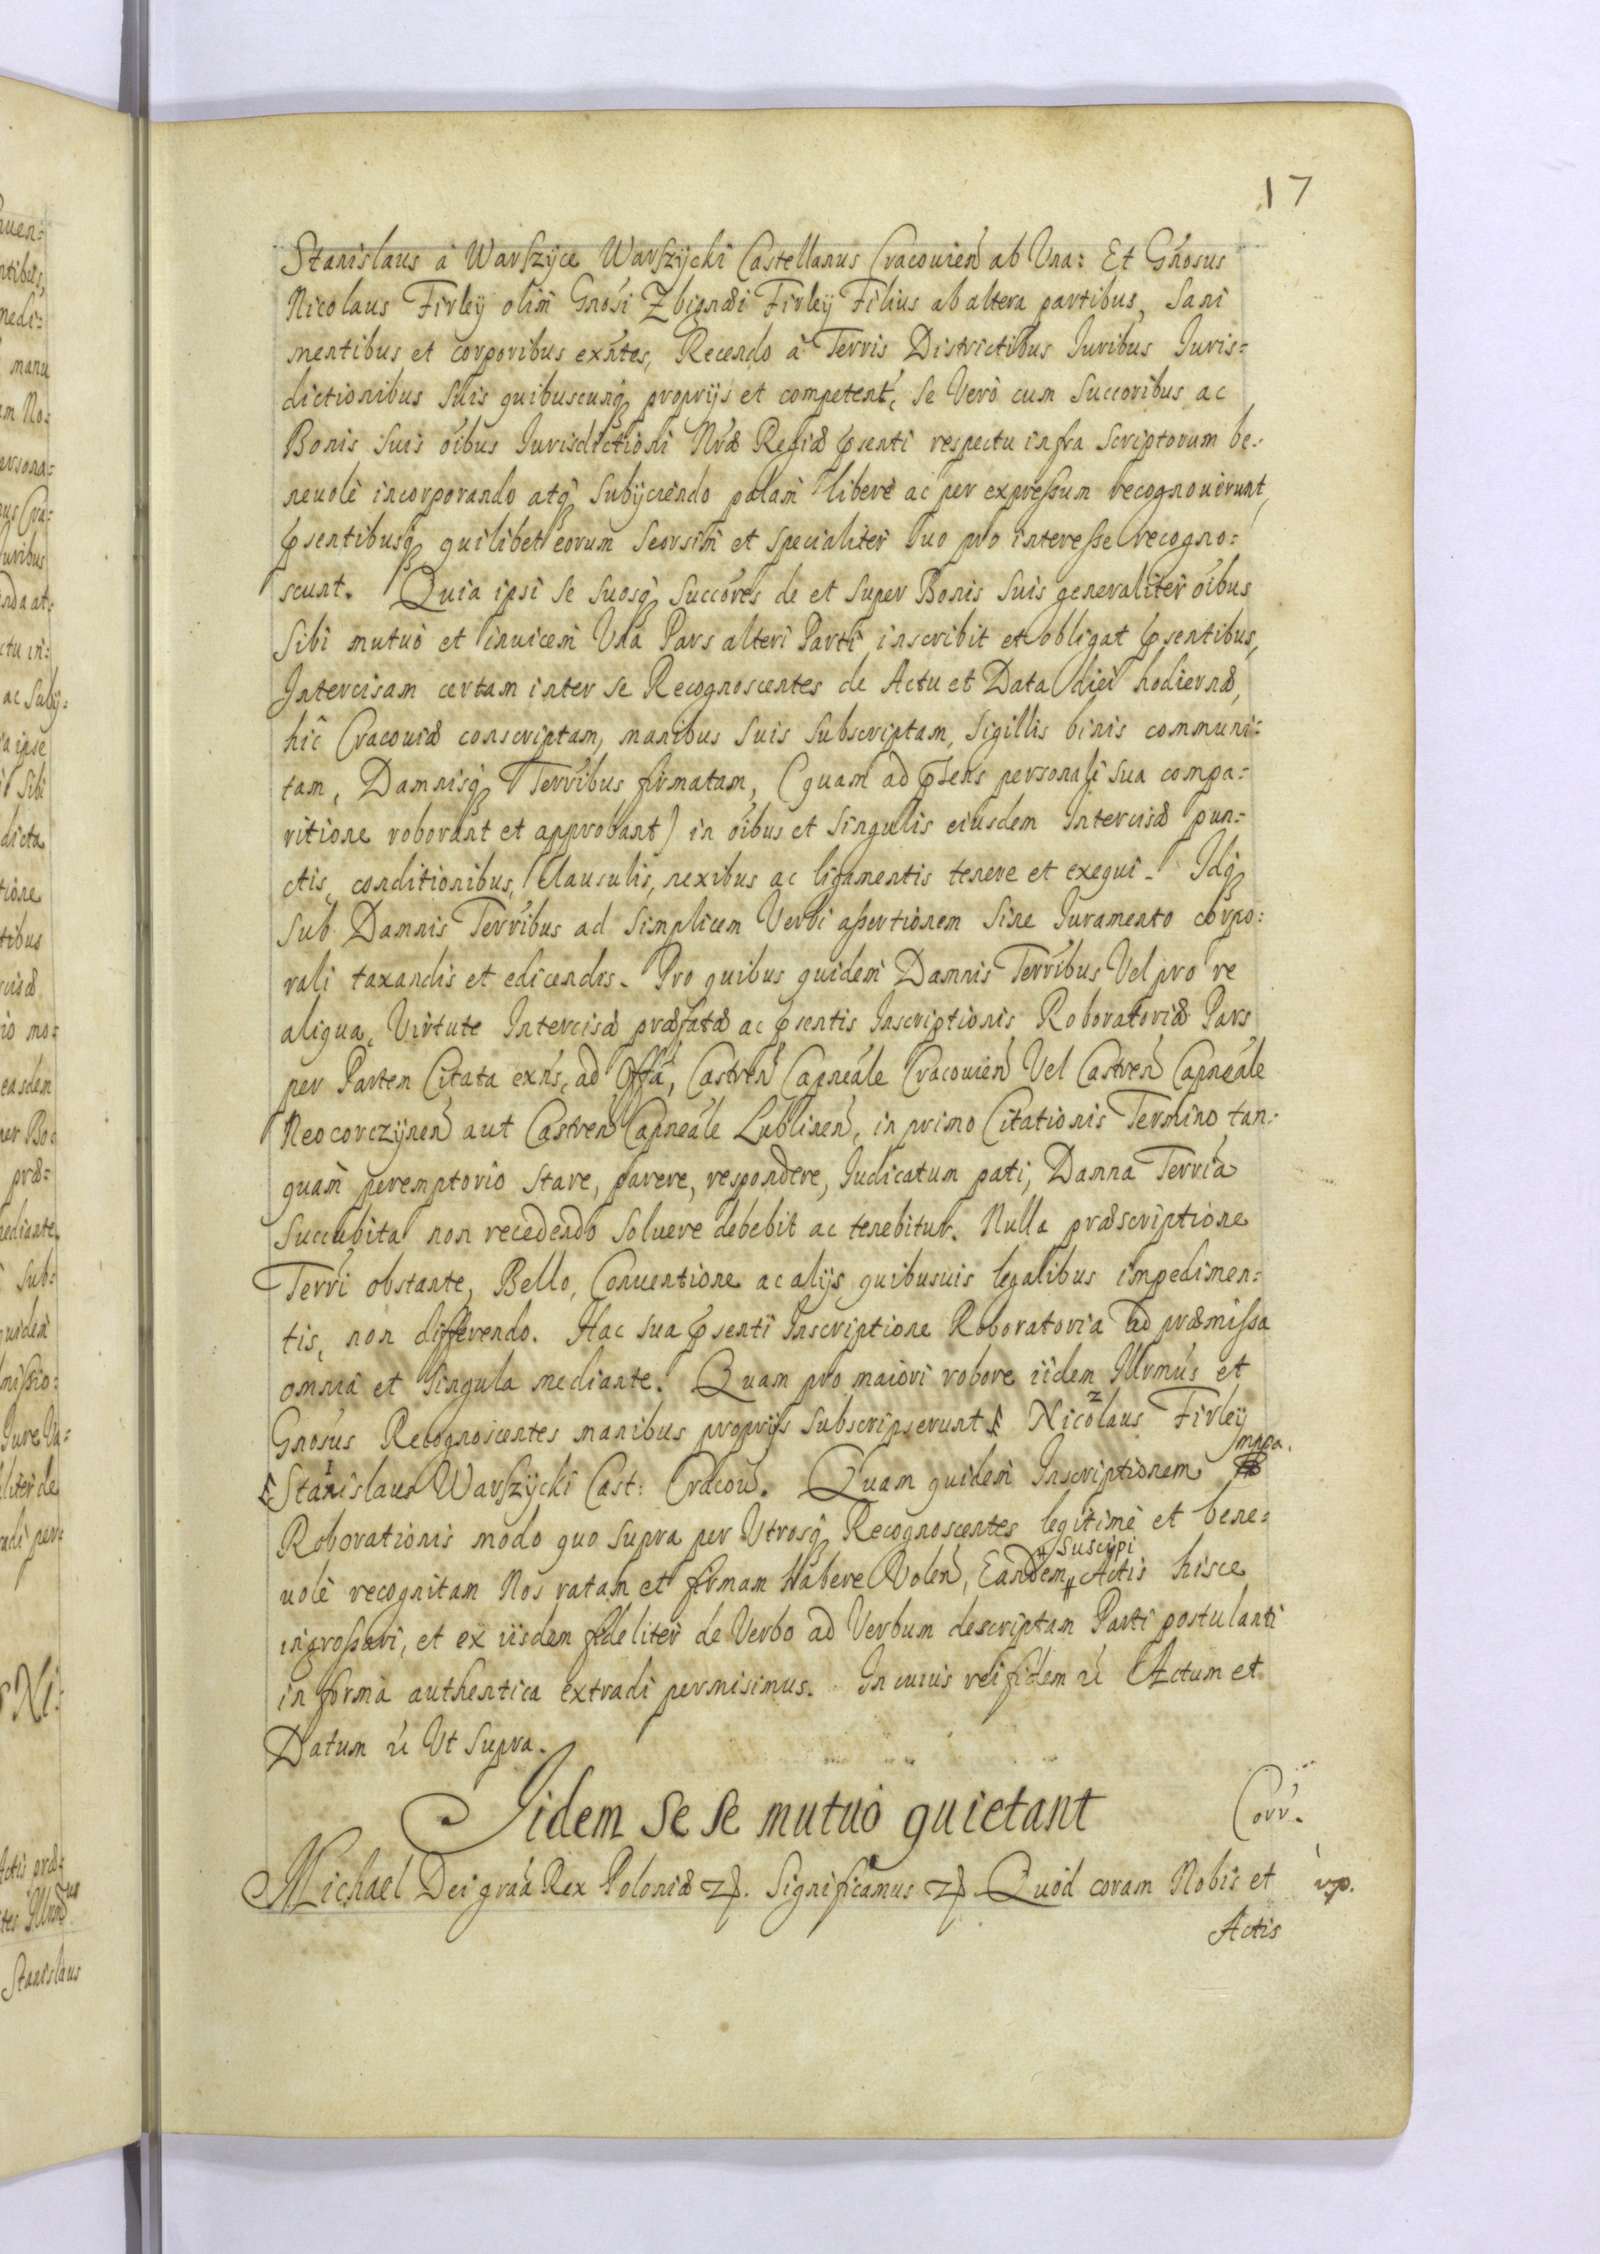 17
Stanislaus à Warszyce Warszycki Castellanus Cracouien ab Una: Et Gnosus
Nicolaus Firley olim Gnosi Zbignæi Firley Filius ab altera partibus, Sani
mentibus et corporibus exntes, Recendo à Terris Districtibus Iuribus Iuris=
dictionibus Suis quibuscunq proprijs et competent, se Verò cum Succoribus ac
Bonis Suis oibus Iurisdictioni Nræ Regiæ psenti respectu infra Scriptorum be=
neuolè incorporando atq Subijciendo palam liberè ac per expressum recognouerunt,
psentibusq quilibet eorum Seorsim et Specialiter Suo pro interesse recogno=
scunt. Quia ipsi Se Suosq Succores de et Super Bonis Suis generaliter oibus
Sibi mutuò et inuicem Una Pars alteri Parti inscribit et obligat psentibus,
Intercisam certam inter se Recognoscentes de Actu et Data diei hodiernæ,
hic Cracouiæ conscriptam, manibus Suis Subscriptam, Sigillis binis communi=
tam, Damnisq Terribus firmatam, (quam ad psens personali sua compa=
ritione roborant et approbant) in oibus et Singulis eiusdem Intercisæ pun=
ctis, conditionibus, Clausulis, nexibus ac ligamentis tenere et exequi. Idq
Sub Damnis Terribus ad Simplicem Verbi assertionem Sine Iuramento corpo=
rali taxandis et edicendis. Pro quibus quidem Damnis Terribus Vel pro re
aliqua, Virtute Intercisæ præfatæ ac psentis Inscriptionis Roboratoriæ Pars
per Partem Citata exns, ad Offa, Castren Capneale Cracouien Vel Castren Capneale
Neocorczynen aut Castren Capneale Lublinen, in primo Citationis Termino tan=
quam peremptorio stare, parere, respondere, Iudicatum pati, Damna Terria
Succubita non recedendo Soluere debebit ac tenebitur. Nulla præscriptione
Terri obstante, Bello, Conuentione ac alijs quibusuis legalibus impedimen=
tis, non differendo. Hac sua psenti Inscriptione Roboratoria ad præmissa
omnia et Singula mediante. Quam pro maiori robore iidem Illrmus et
Gnosus Recognoscentes manibus proprijs Subscripserunt Nicolaus Firley
2
mppa.
1
Stanislaus Warszycki Cast: Cracou. Quam quidem Inscriptionem
Roborationis modo quo Supra per Utrosq Recognoscentes legitimè et bene=
Suscipi
uolè recognitam Nos ratam et firmam habere Volen, Eandem Actis hisce
ingrossari, et ex iisdem fideliter de Verbo ad Verbum descriptam Parti postulanti
in forma authentica extradi permisimus. In cuius rei fidem Actum et
Datum Ut Supra.
Iidem Se Se mutuò quietant
Corr.
Michael Dei graa Rex Poloniæ. Significamus Quod coram Nobis et
Actis